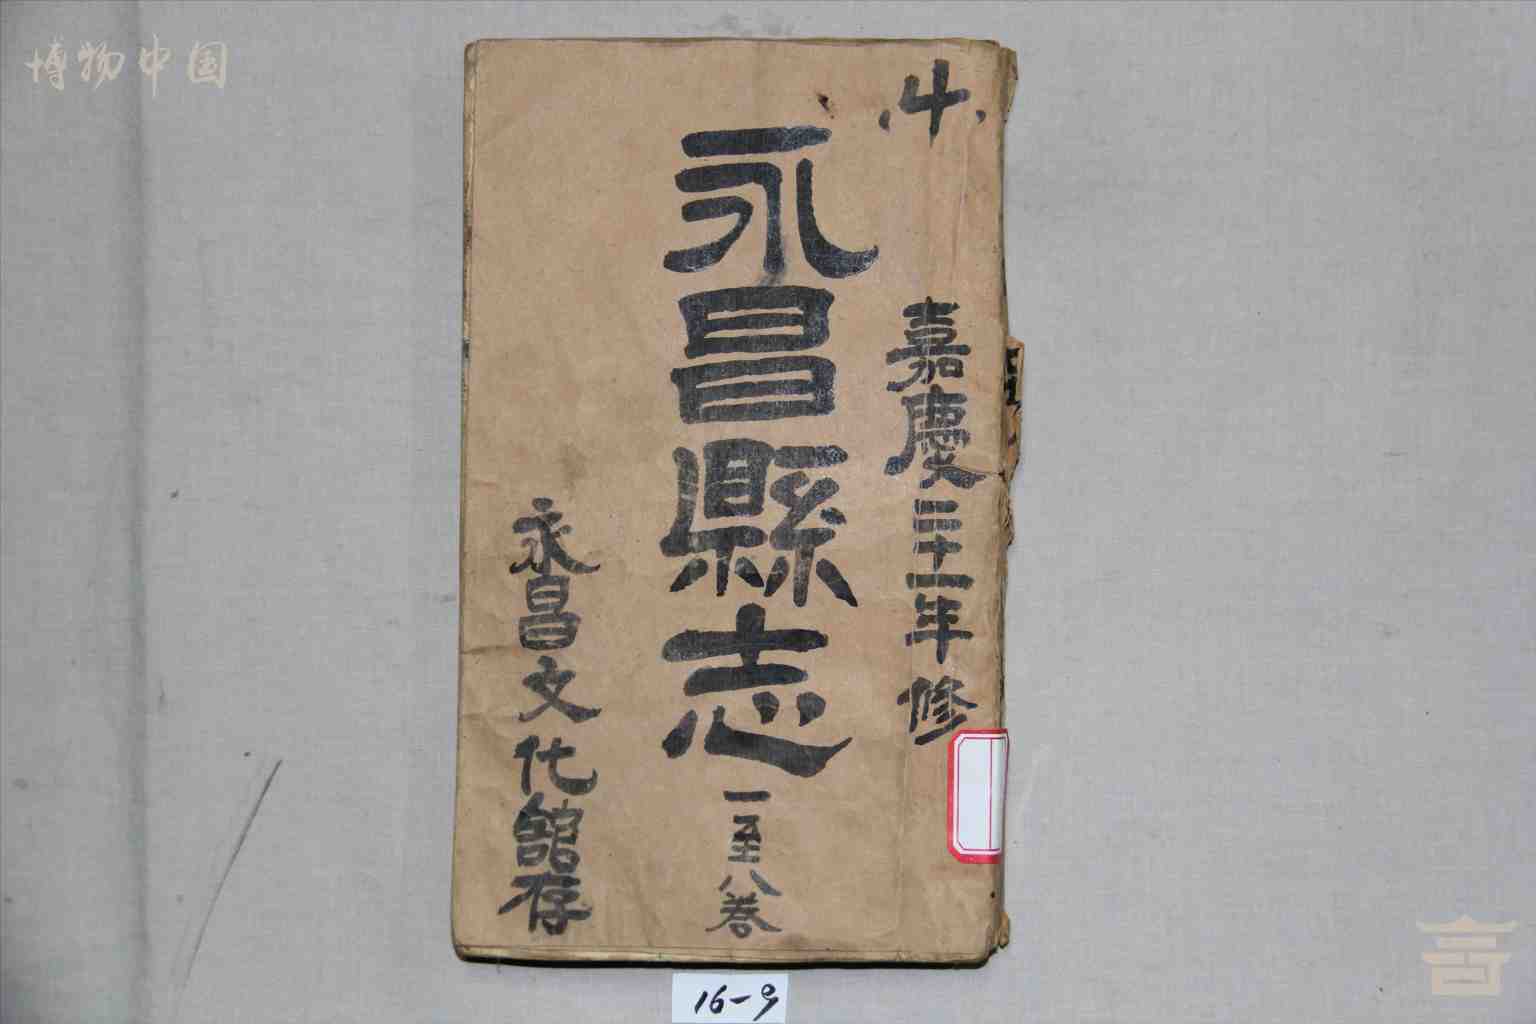 嘉慶二十一年修
永昌縣志
一至八卷
永昌文化館存
16-9
博物中国